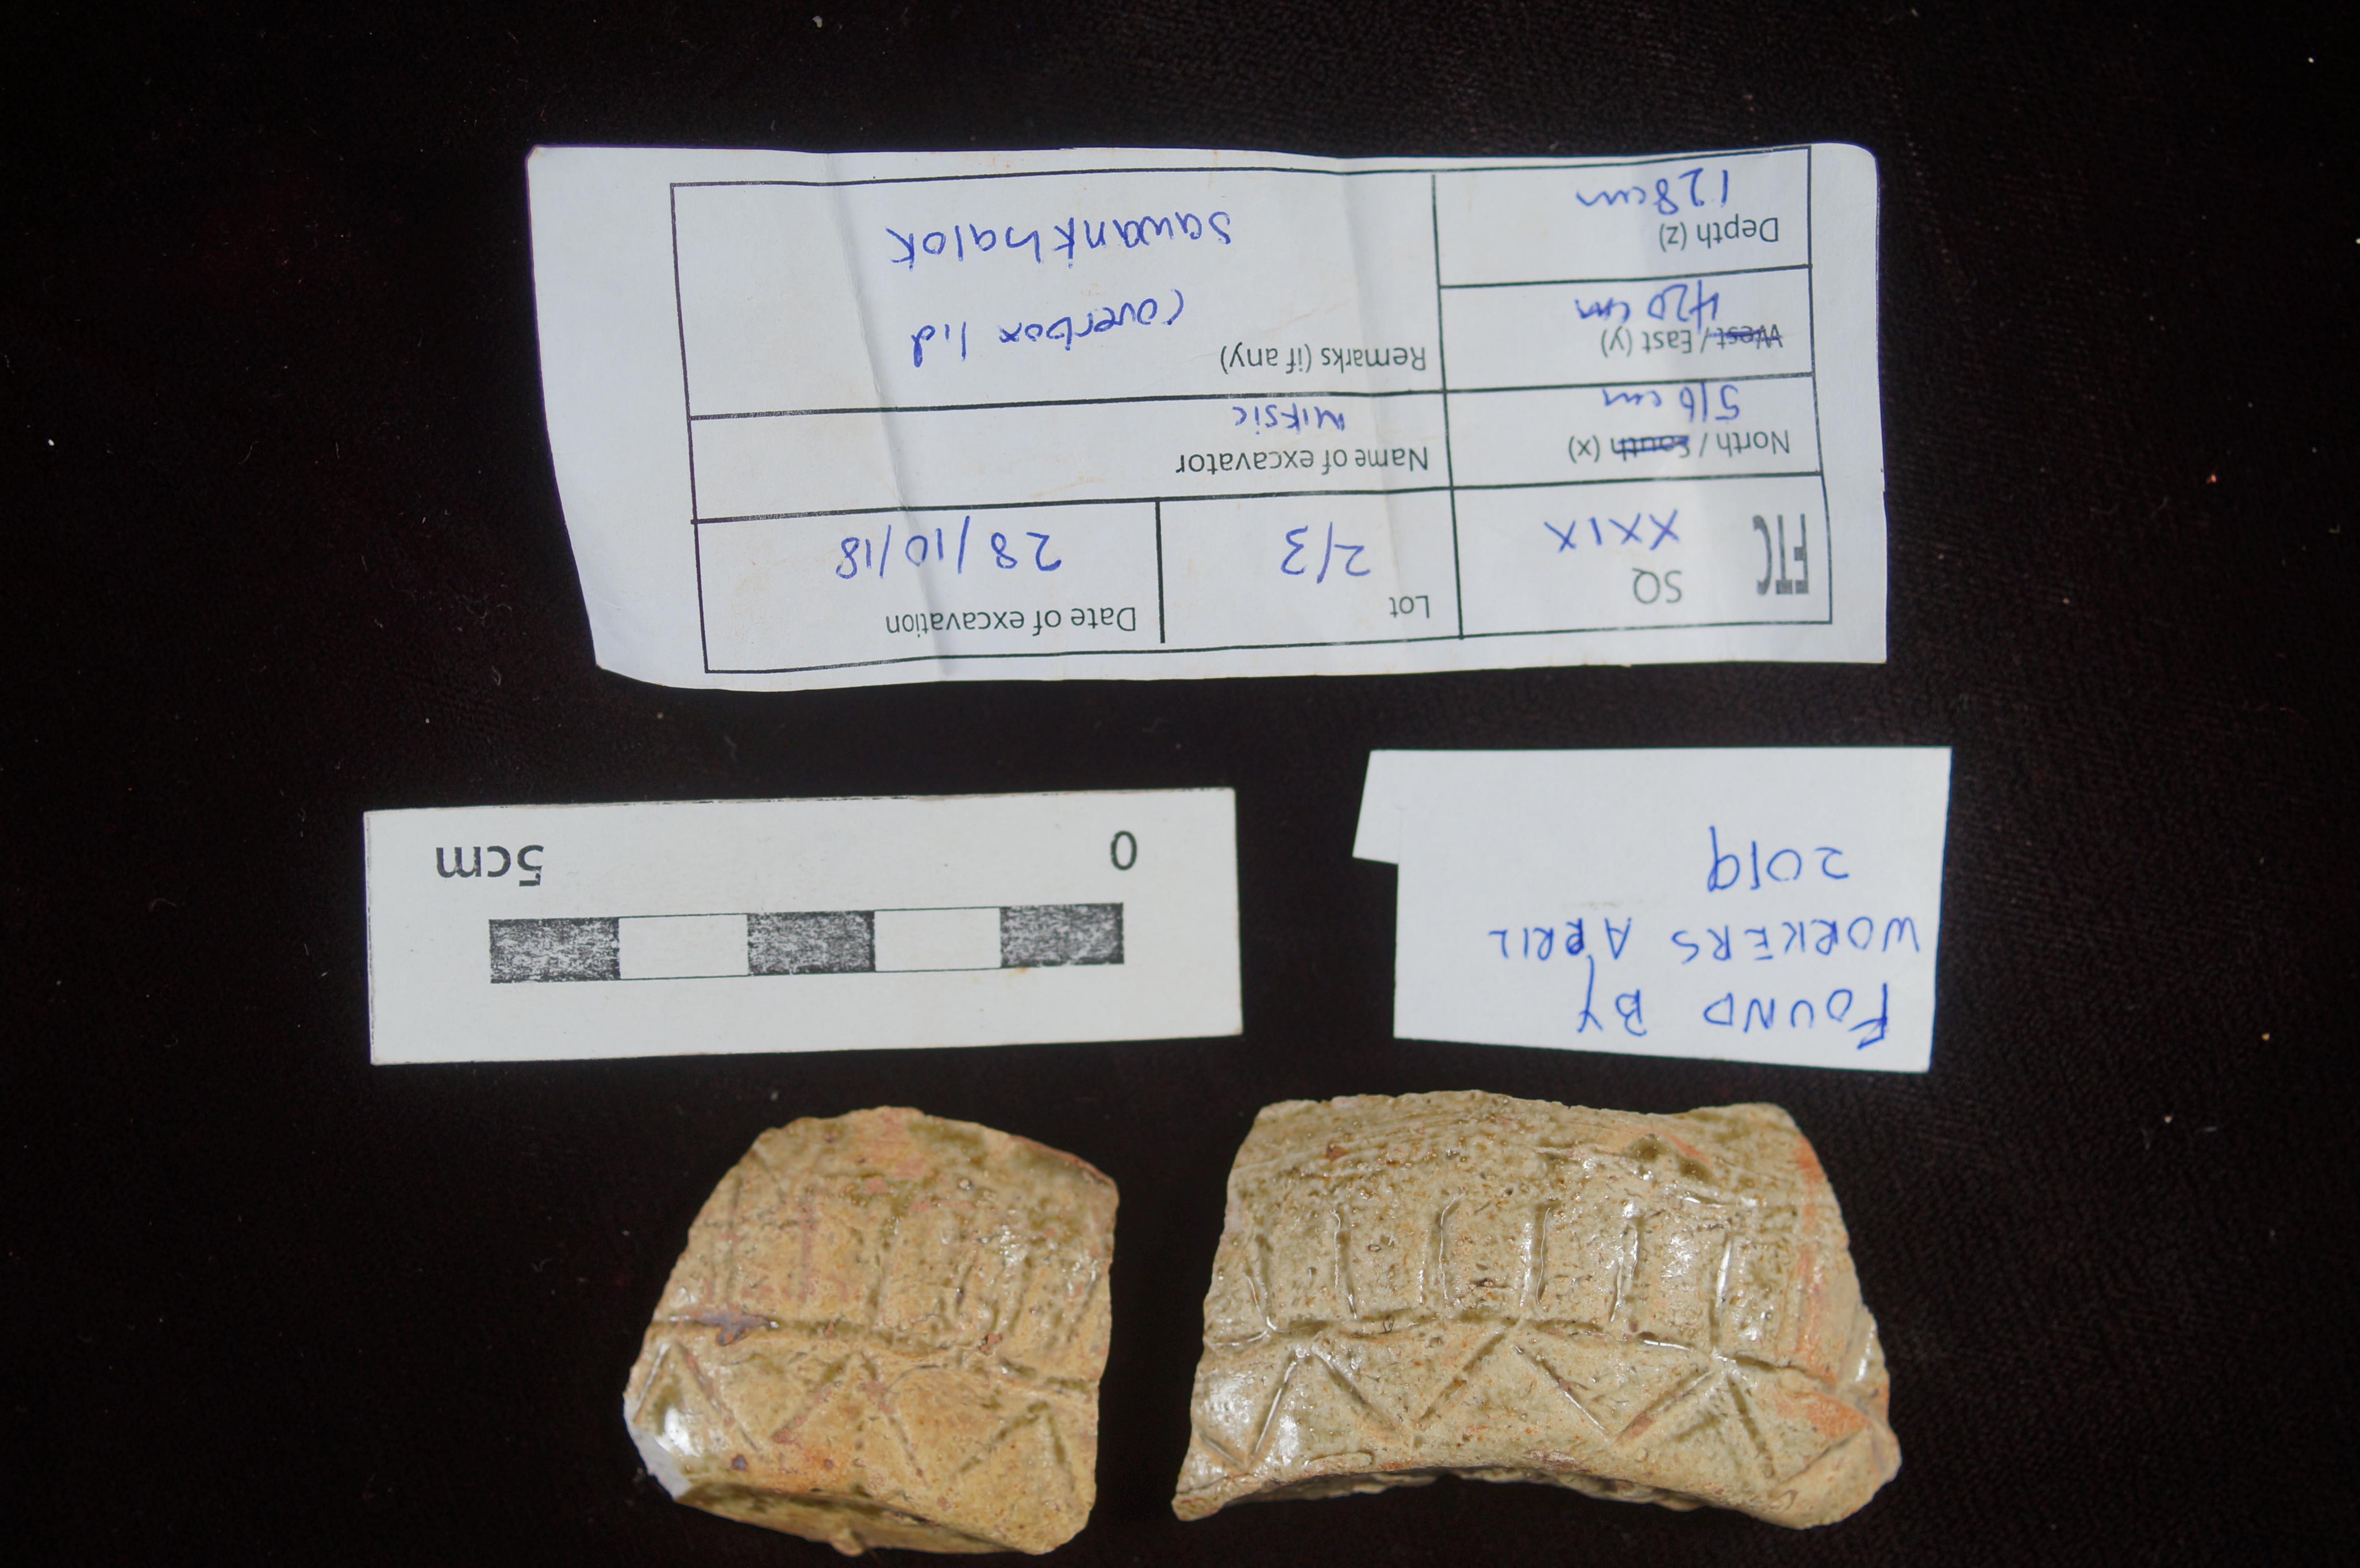 0 5cm
FOUND BY
WORKERS APRIL
2019
FTC SQ
XXIX
Lot
2/3
Date of excavation
28/10/18
North / South (x)
516 cm
Name of excavator
MIKSIC
West / East (y)
420 cm
Remarks (if any)
coverbox lid
sawankhalok
Depth (z)
128cm